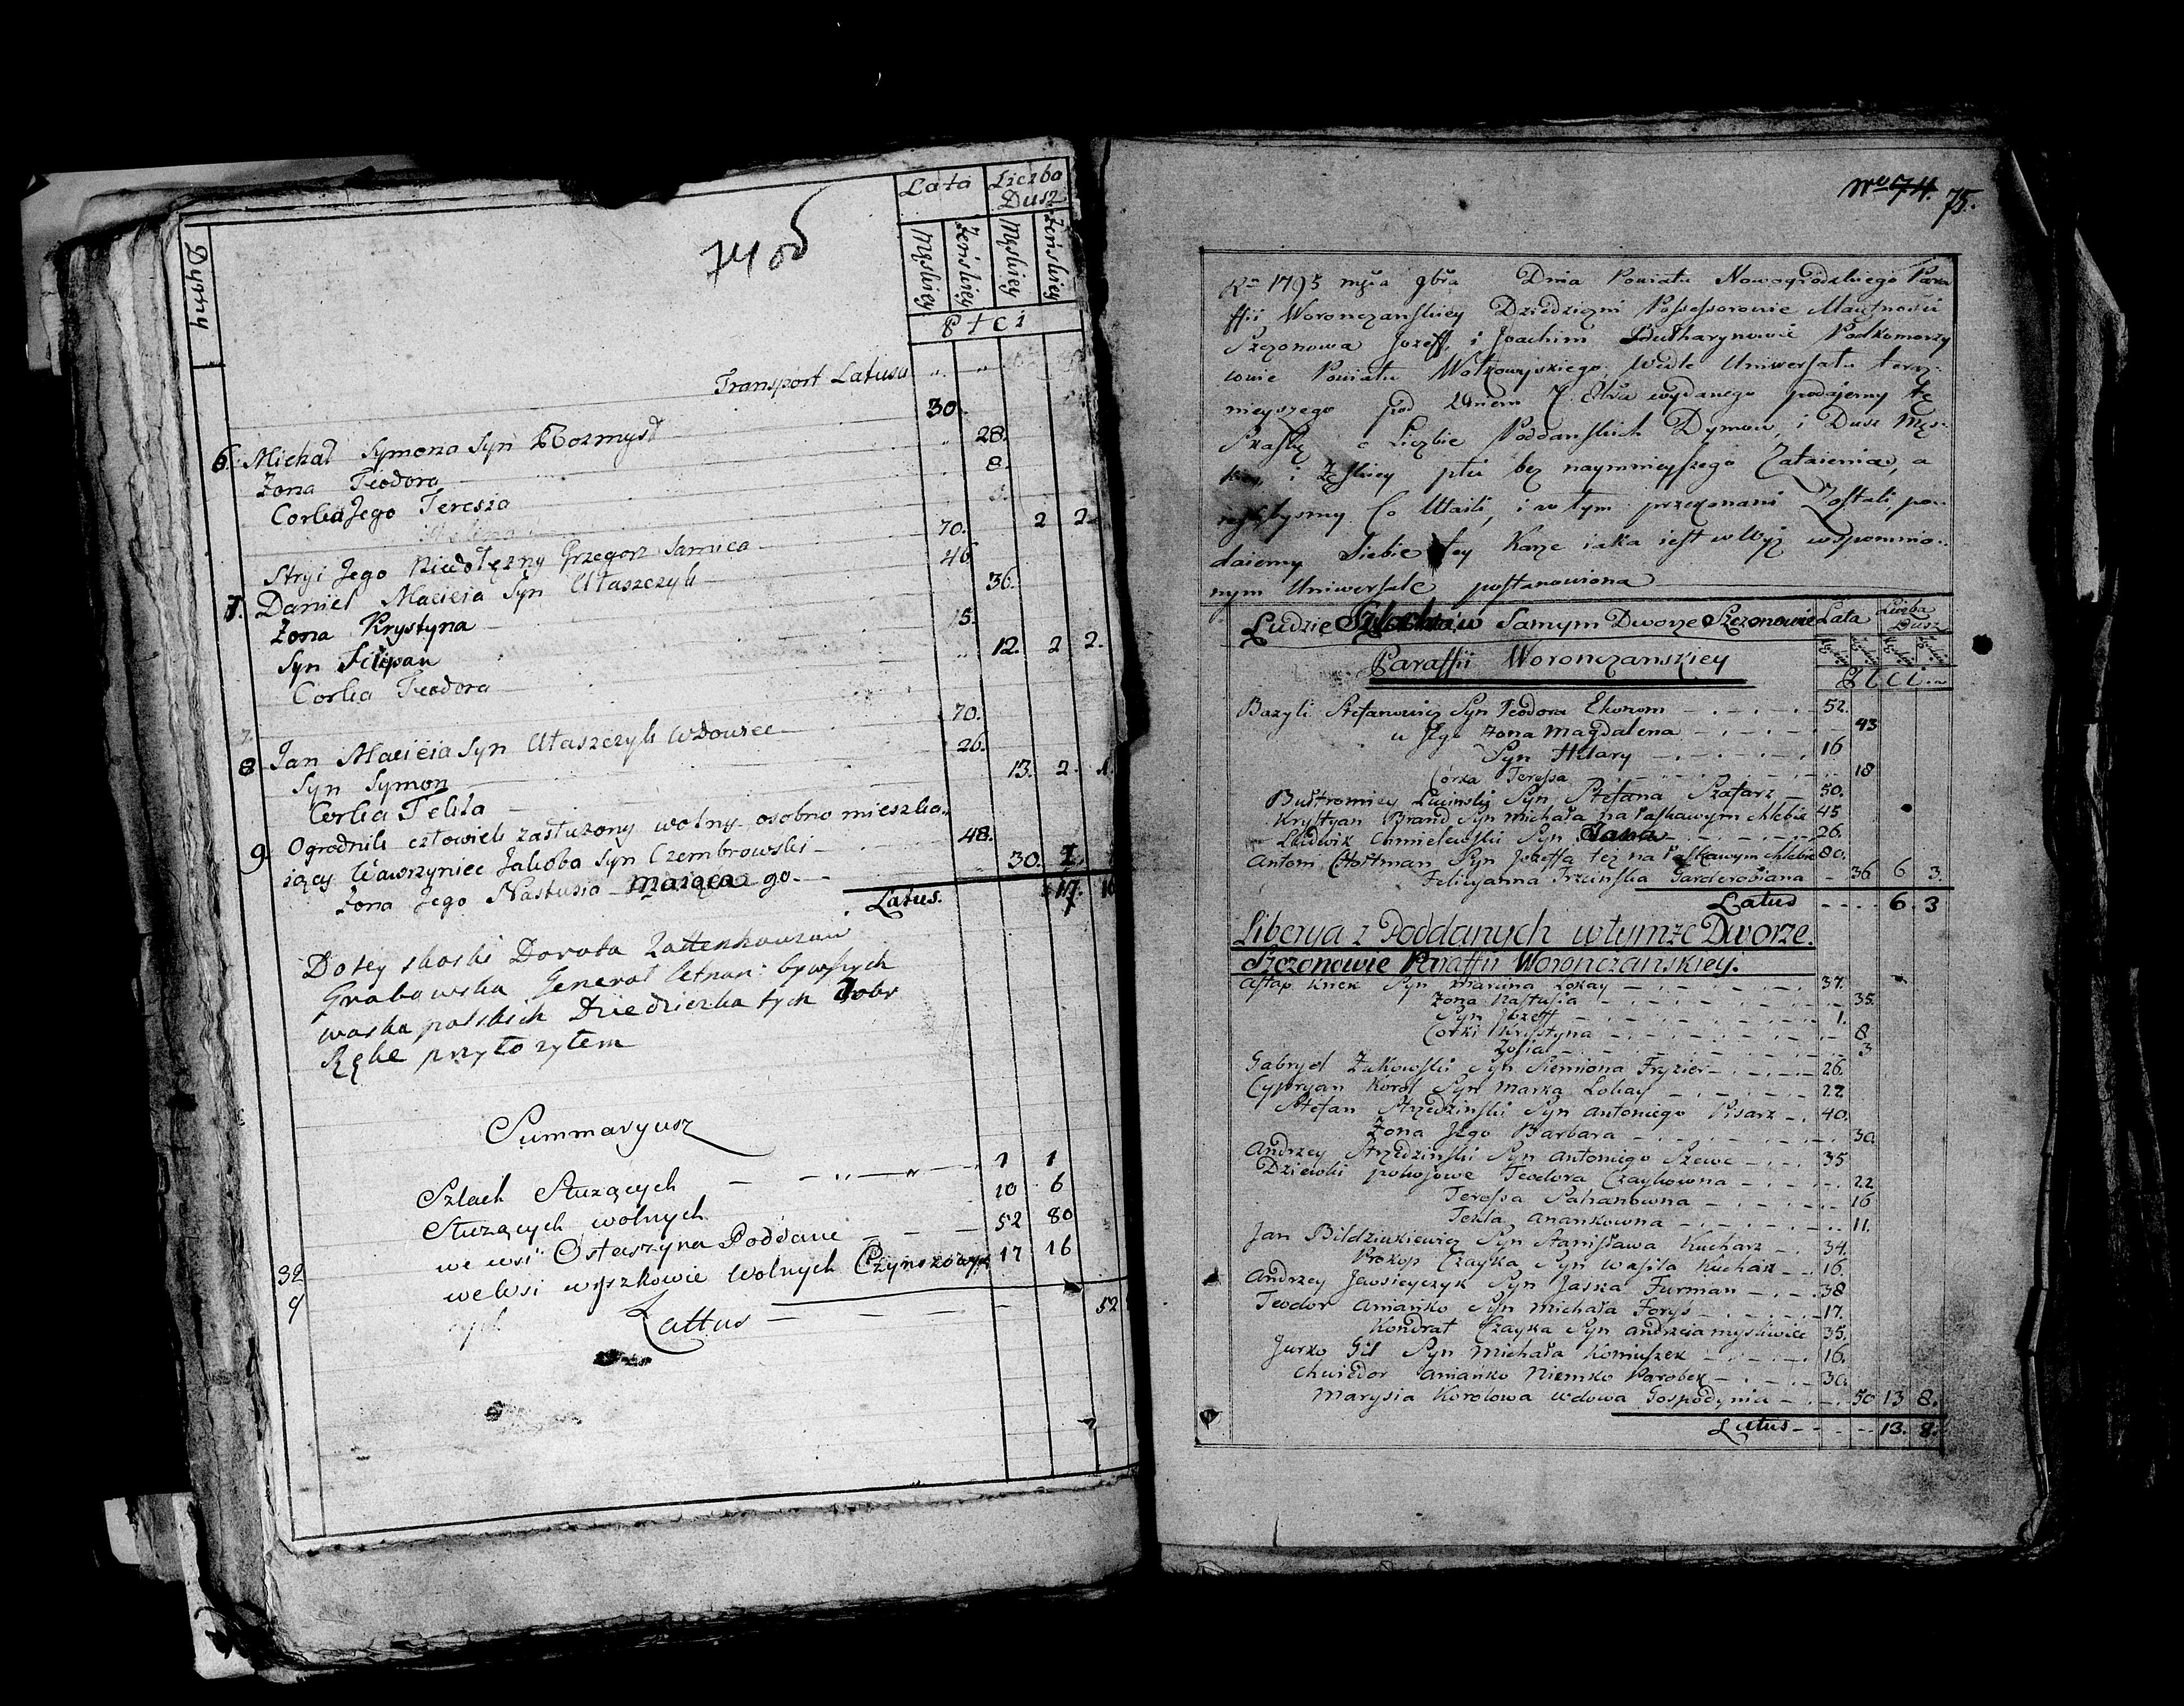 74 об
Dymy
Lata Liczba Dusz
Męskiey Żeńskiey Męskiey Żeńskiey
Płci
Transport Latusu „ „
6. Michał Symona Syn Rozmysł 30.
Żona Teodora „ 28.
Corka Jego Teresza 8.
Stryi Jego Niedołężny Grzegorz Samica 70. 2 2
7. Daniel Macieia Syn Ułaszczyk 46
Żona Krystyna 36.
Syn Sciepan 15.
Corka Teodora „ 12. 2 2.
8 Jan Macieia Syn Ułaszczyk Wdowiec 70.
Syn Symon 26.
Corka Tekla 13. 2. 1.
9. Ogrodnik człowiek zasłużony wolny osobno mieszka„
iący Wawrzyniec Jakoba Syn Czembrowski 48.
Żona Jego Nastusia 30.
Latus. 17. 16
Do tey skaski Dorota
Grabowska Generał Letnan: bywszych
woska polskich Dziedziczka tych Dobr
Rękę przyłożyłem
Summaryusz
Szlach Słuzących 1 1
Słuzących wolnych 10 6
32 we wsi Ostaszyna Poddane 52 80
9 we wsi wyszkowie Wolnych Czynszowych 17 16
Lattus 52
No 74. 75.
Rº 1795 mśca 9bra Dnia Powiatu Nowogrodzkiego Para
ffii Woronczanskiey Dziedziczni Possessorowie Maiętności
Szczonowa Jozeff, i Joachim Bułharynowie Podkomorzy
cowie Powiatu Wołkowyskiego, Wedle Uniwersału teraz-
nieyszego pod Dniem 7. 8bra wydanego podajemy tę
Skaskę o Liczbie Poddanskich Dymow, i Dusz Męs-
kiey, i Żeskiey płci bez naymnieyszego Zataienia, a
ieżlibysmy Co Utaili, i w tym przekonani Zostali, pod-
daiemy Siebie tey Karze iaka iest w Wyż wspomnio-
nym Uniwersale postanowiona
Ludzie Szlachta w Samym Dworze Szczonowie Lata Liczba Dusz
Paraffii Woronczanskiey
Płci
Bazyli Stefanowicz Syn Teodora Ekonom 52.
u Jego Żona Magdalena 43
Syn Hilary 16
Córka Teressa 18
Bustromiey Lucinski Syn Stefana Szafarz 50.
Krystyan Brand Syn Michała na łaskawym chlebie 45
Ludwik Chmielewski Syn Jana 26.
Antoni Hoftman Syn Jozeffa też na łaskawym chlebie 80.
Felicyanna Trzcinska Garderobiana 36 6 3.
Latus 6. 3
Liberya z Poddanych w tymże Dworze.
Szczonowie Paraffii Woronczanskiey.
Astap Knek Syn Marcina Lokay 37.
Żona Nastusia 35.
Syn Jozeff 1.
Corki Krystyna 8
Zofia 3
Gabryel Żukowski Syn Siemiona Fryzier 26.
Cypryan Korol Syn Marka Lokay 22
Stefan Strzedzinski Syn Antoniego Pisarz 40.
Żona Jego Barbara 30.
Andrzey Strzedzinski Syn Antoniego Szewc 35
Dziewki pokojowe Teodora Czaykowna 22
Teressa Pahanowna 16
Tekla Anankowna 11.
Jan Bildziukiewicz Syn Stanisława Kucharz 34.
Prokop Czayka Syn Wasila Kucharz 16.
Andrzey Jewsieyczyk Syn Jaska Furman 38
Teodor Aniańko Syn Michała Forys 17.
Kondrat Czayka Syn Andrzeia myśliwiec 35.
Jurko Gil Syn Michała Koniuszek 16.
Chwiedor Aniańko Niemko Parobek 30.
Marysia Korolowa Wdowa Gospodynia 50 13 8.
Latus 13. 8.